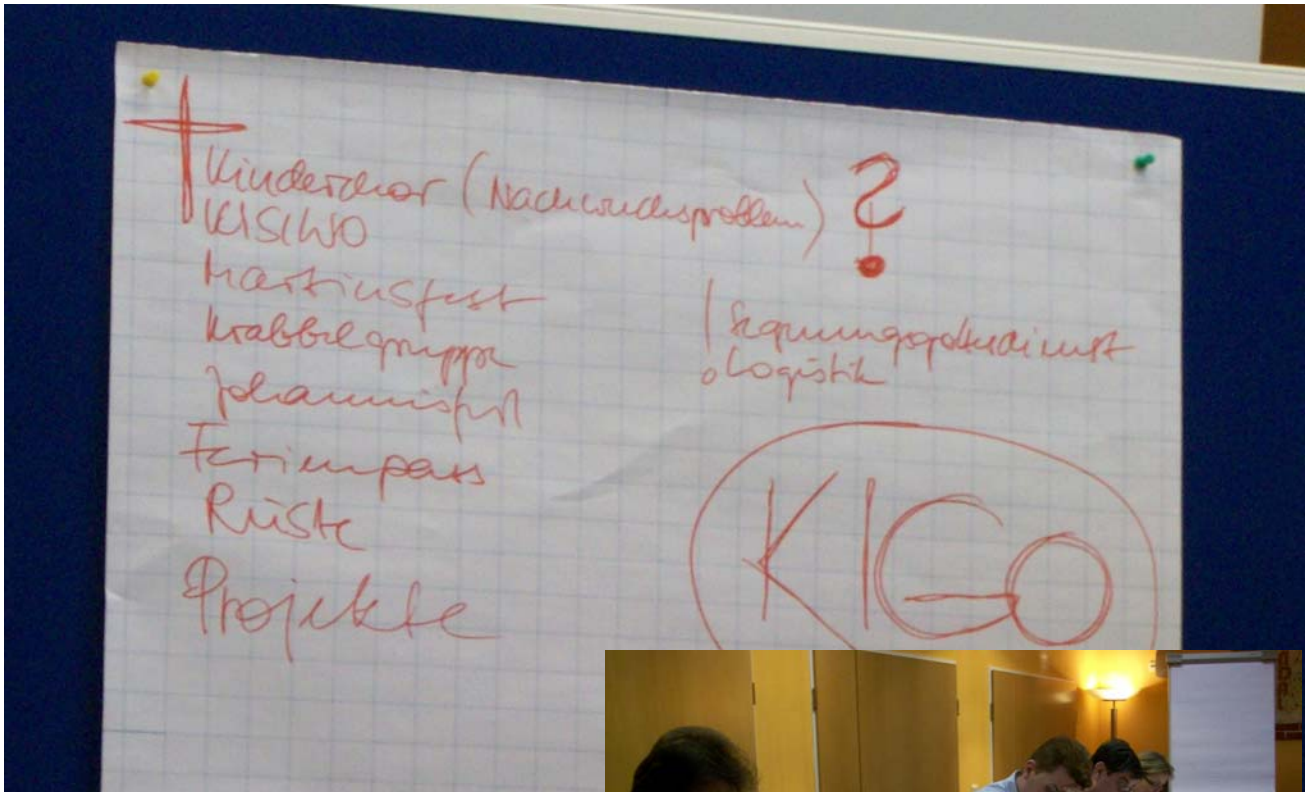 Kinderchor (Nachwuchsproblem) ?
KISIWO
Martinsfest
Krabbelgruppe
Johannisfest
Ferienpass
Rüste
Projekte
! Segnungsgottesdienst
Logistik
KIGO